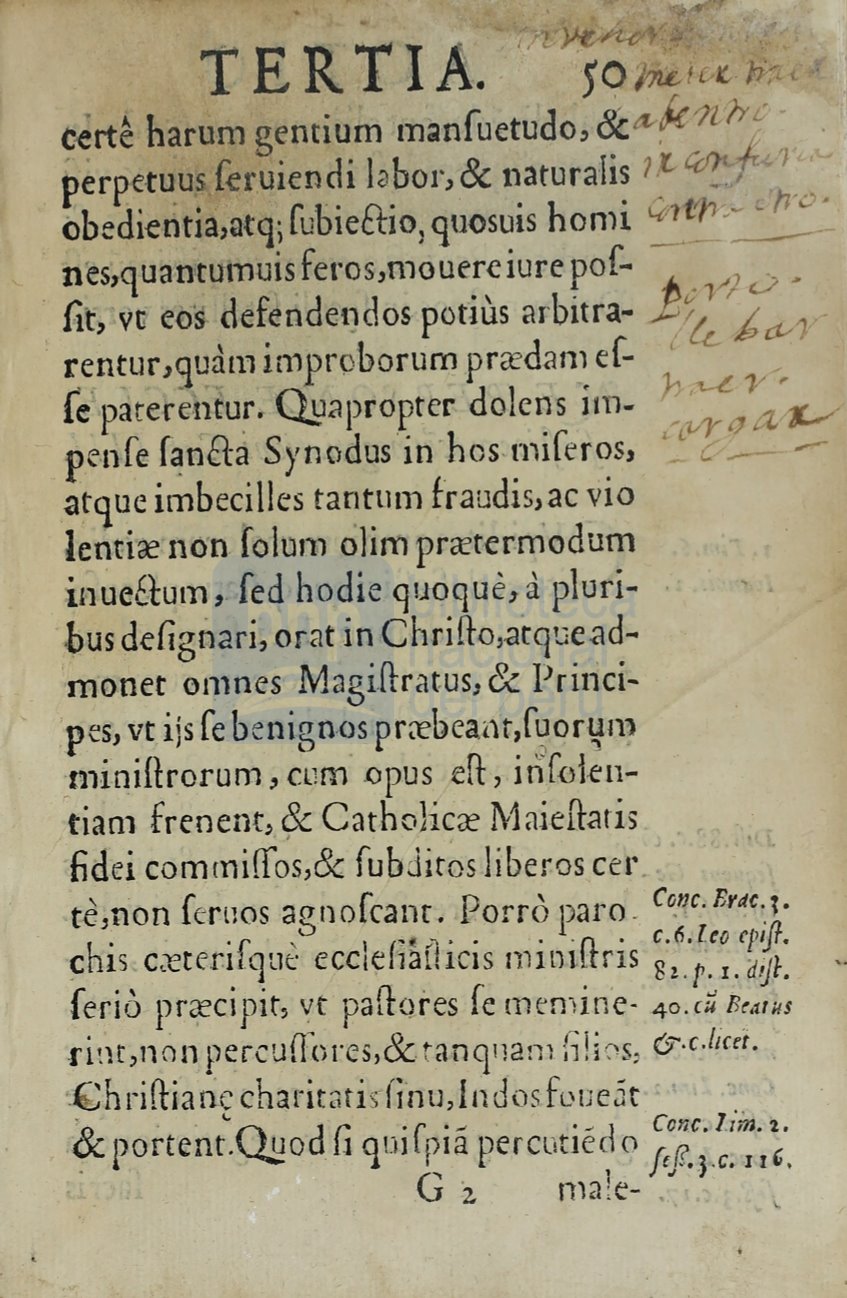 TERTIA. 50
certê harum gentium manſuetudo, &
perpetuus ſeruiendi labor, & naturalis
obedientia, atq; ſubiectio, quosuis homi
nes, quantumuis feros, mouere iure poſ-
ſit, vt eos defendendos potiùs arbitra-
rentur, quàm improborum prædam eſ-
ſe paterentur. Quapropter dolens im-
penſe ſancta Synodus in hos miſeros,
atque imbecilles tantum fraudis, ac vio
lentiæ non ſolum olim prætermodum
inuectum, ſed hodie quoquè, à pluri-
bus deſignari, orat in Chriſto, atque ad-
monet omnes Magiſtratus, & Princi-
pes, vt ijs ſe benignos præbeant, ſuorum
miniſtrorum, cum opus eſt, inſolen-
tiam frenent, & Catholicæ Maieſtatis
fidei commiſſos, & ſubditos liberos cer
tè, non ſeruos agnoſcant. Porrò paro
chis cæteriſquè eccleſiaſticis miniſtris
ſeriò præcipit, vt paſtores ſe memine-
rint, non percuſſores, & tanquam filios,
Chriſtianę charitatis ſinu, Indos foueãt
& portent. Quod ſi quiſpiã percutiédo
G 2 male-
Conc. Brac. 3.
c. 6. Leo epiſt.
82. p. 1. diſt.
40. cũ Beatus
&. c. licet.
Conc. Lim. 2.
ſeſſ. 3. c. 116.